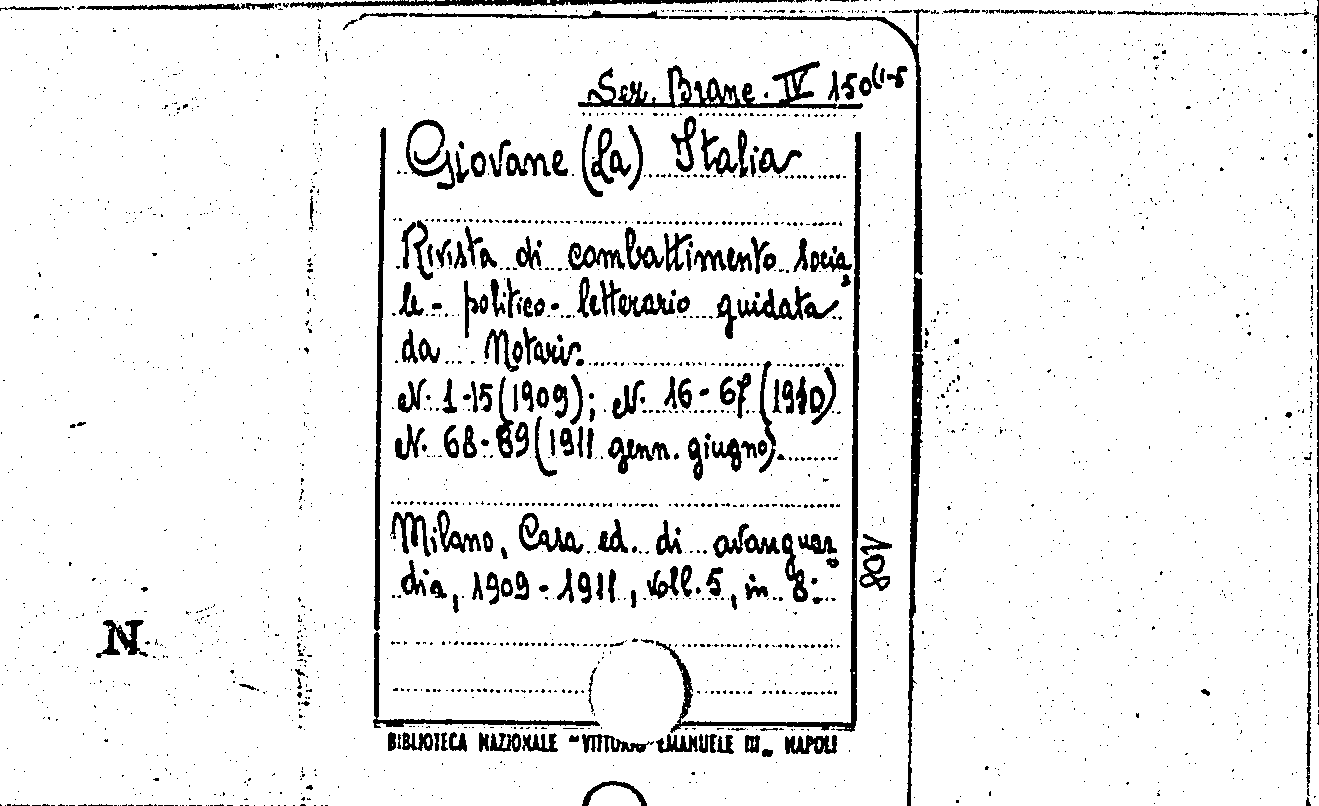 Ser. Brane. IV 150(1-5
Giovane (La) Italia
Rivista di combattimento socia
le - politico - letterario guidata
da Notari.
N. 1-15 (1909); N. 16-67 (1910)
N. 68-89 (1911 genn. giugno).
Milano, Casa ed. di avanguar
dia, 1909-1911, voll. 5, in 8.
108
N
BIBLIOTECA NAZIONALE "VITTORIO EMANUELE III„ NAPOLI